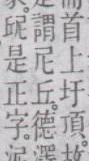 首上圩頂。故
謂尼丘。德澤
屔是正字。泥